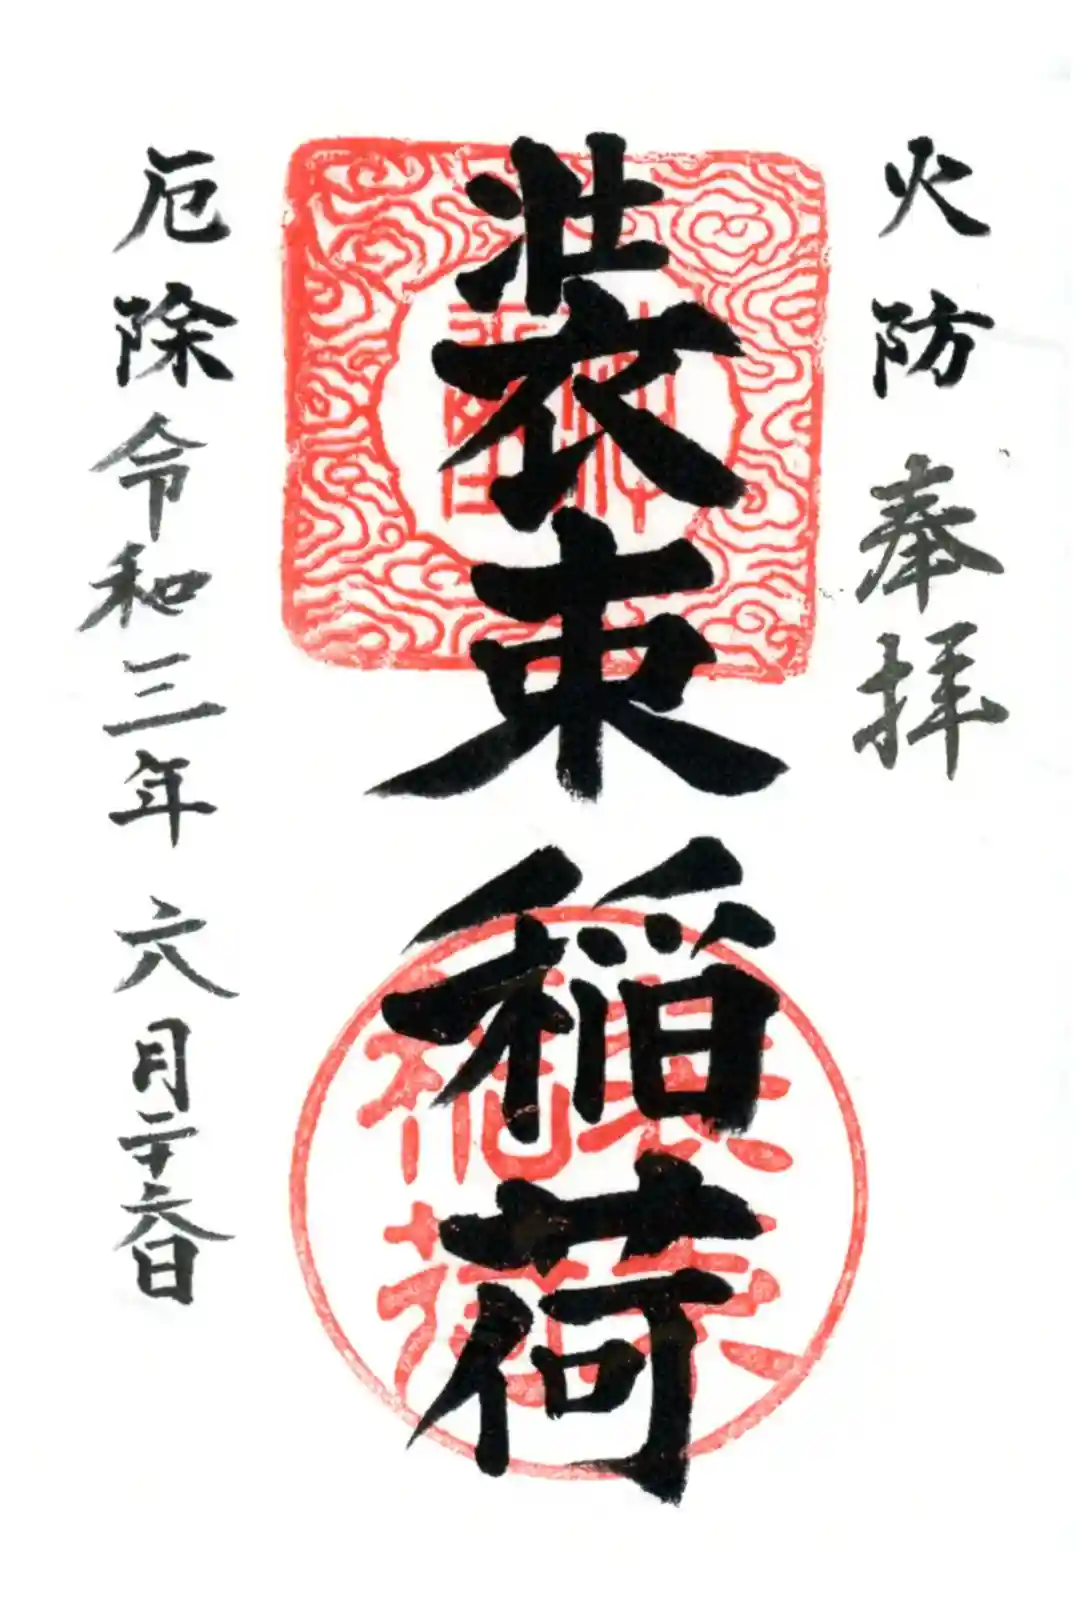 火防 奉拝
装束稲荷
厄除 令和三年 六月二十六日